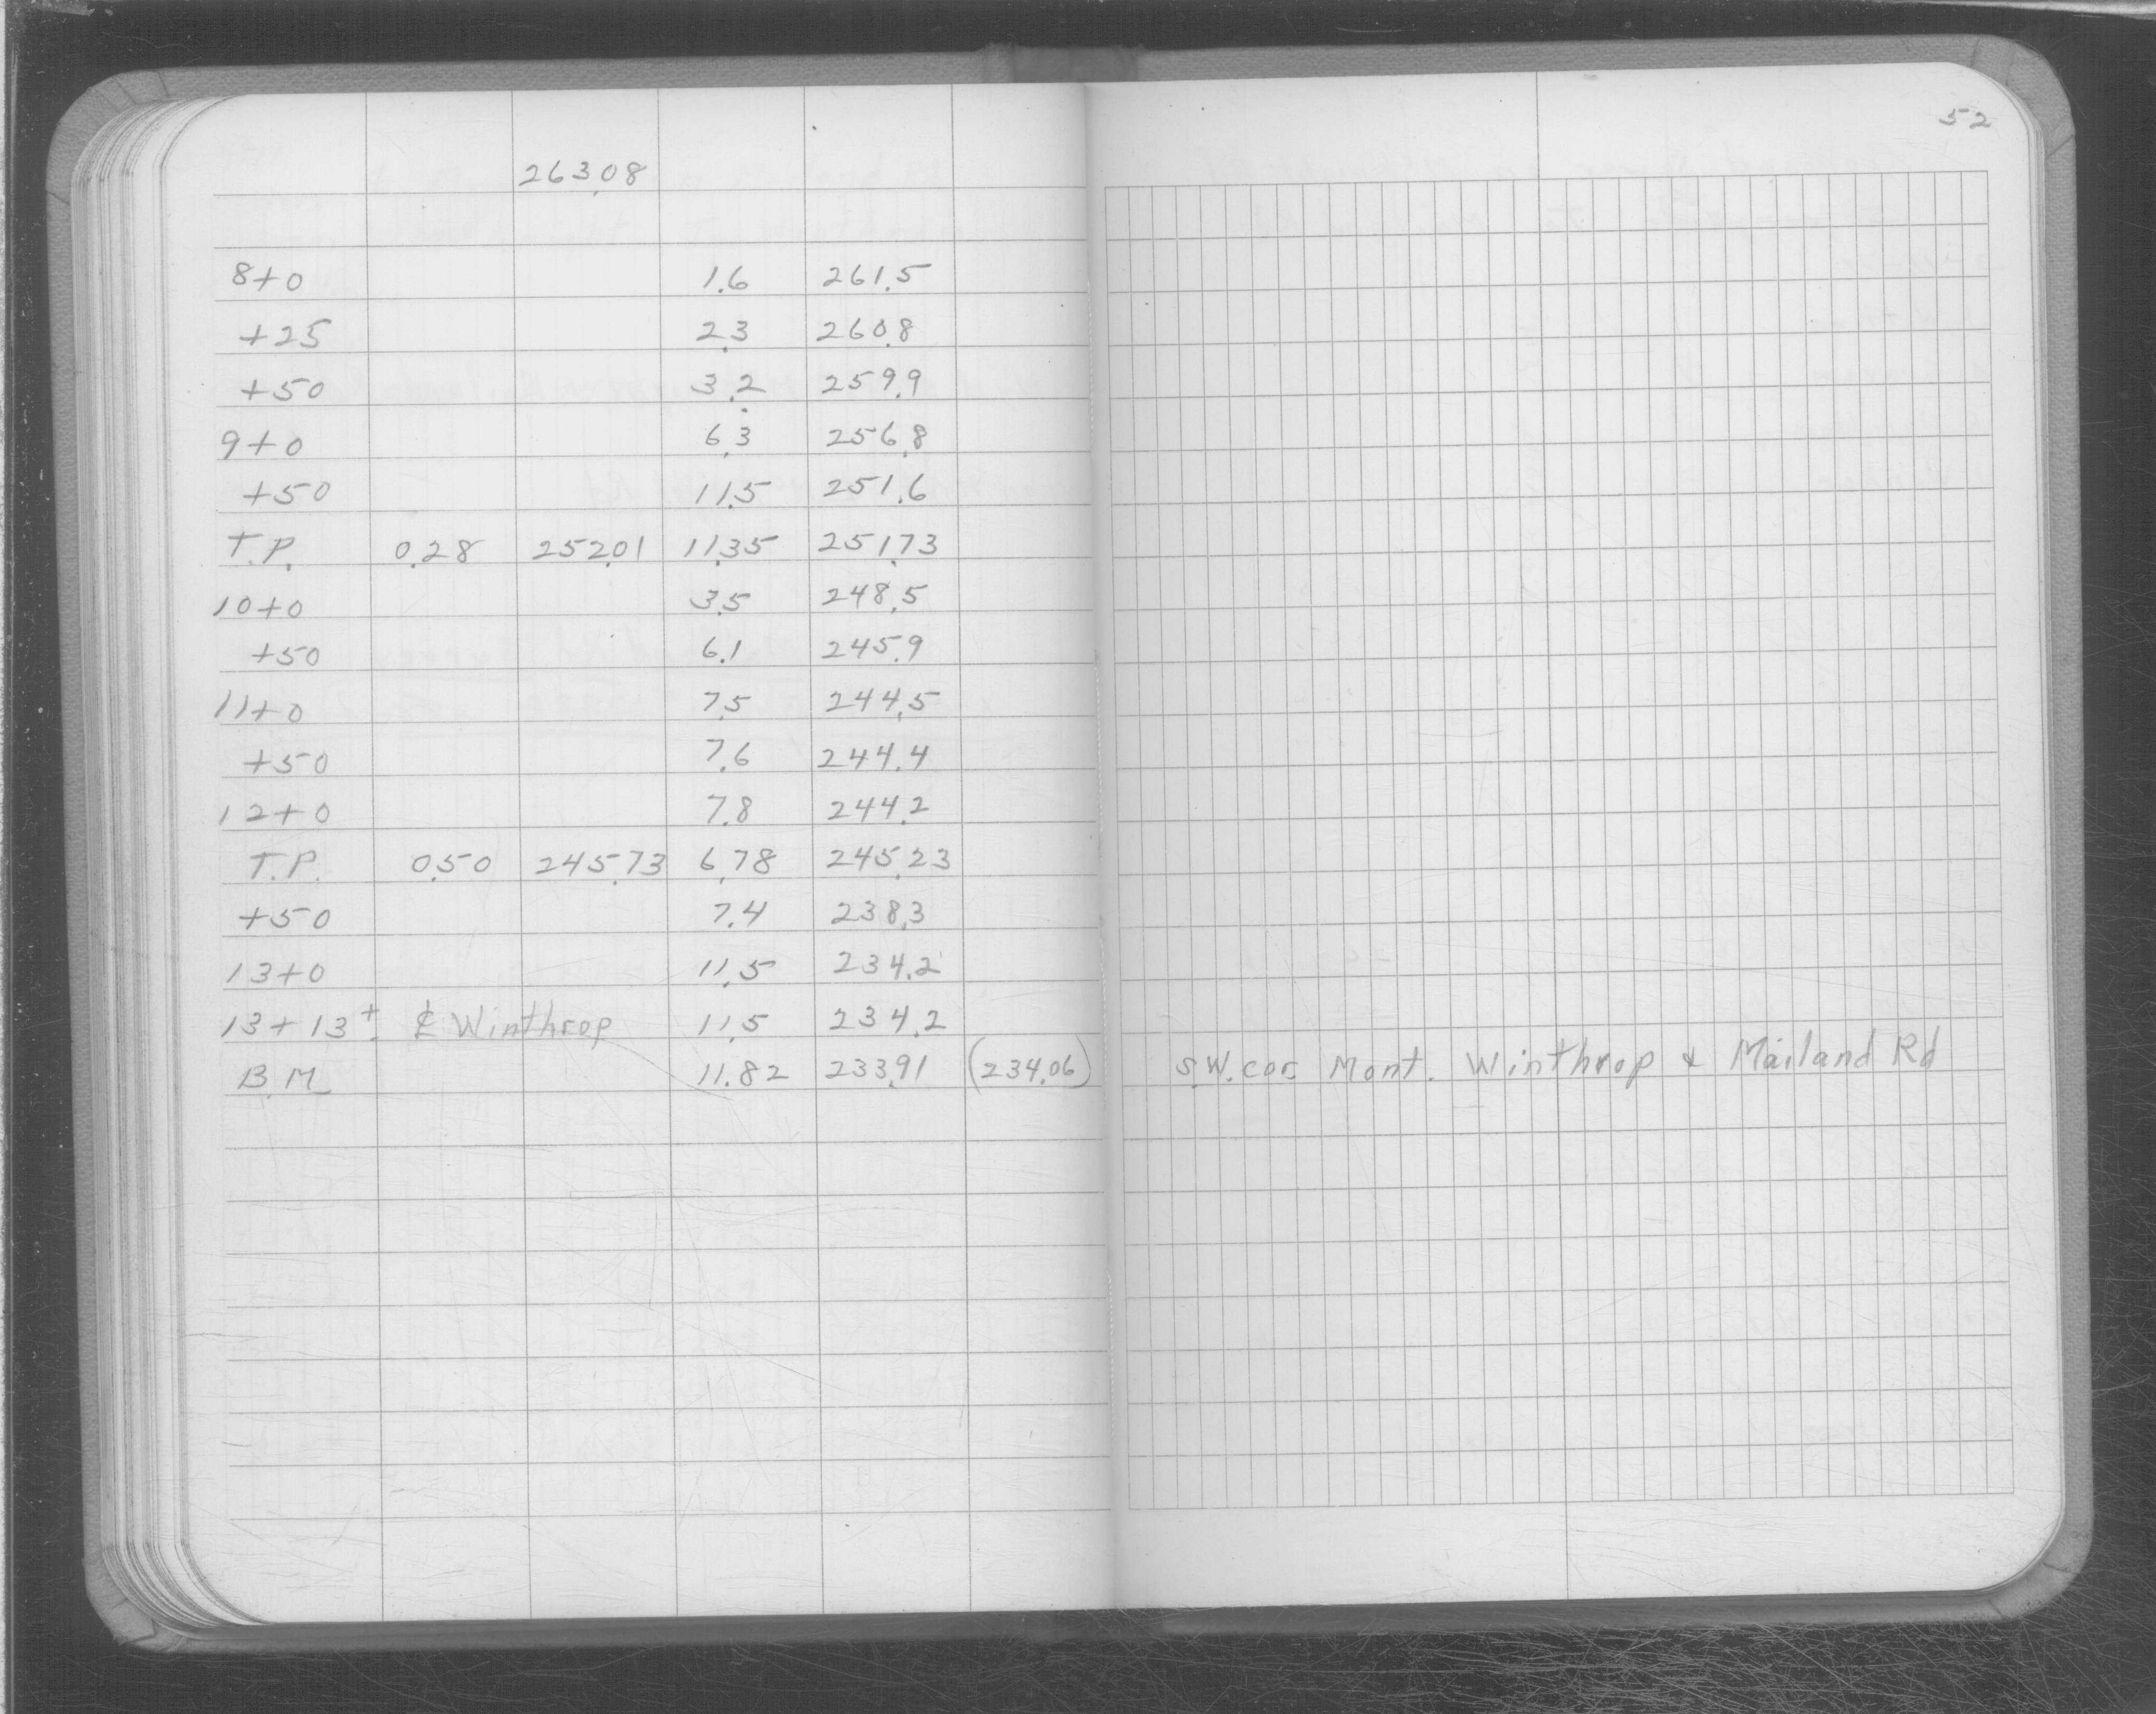 52
263.08
8+0 1.6 261.5
+25 2.3 260.8
+50 3.2 259.9
9+0 6.3 256.8
+50 11.5 251.6
T.P. 0.28 252.01 11.35 251.73
10+0 3.5 248.5
+50 6.1 245.9
11+0 7.5 244.5
+50 7.6 244.4
12+0 7.8 244.2
T.P. 0.50 245.73 6.78 245.23
+50 7.4 238.3
13+0 11.5 234.2
13+13± ℄ Winthrop 11.5 234.2
B.M. 11.82 233.91 (234.06) S.W. cor. Mont. Winthrop & Mailand Rd